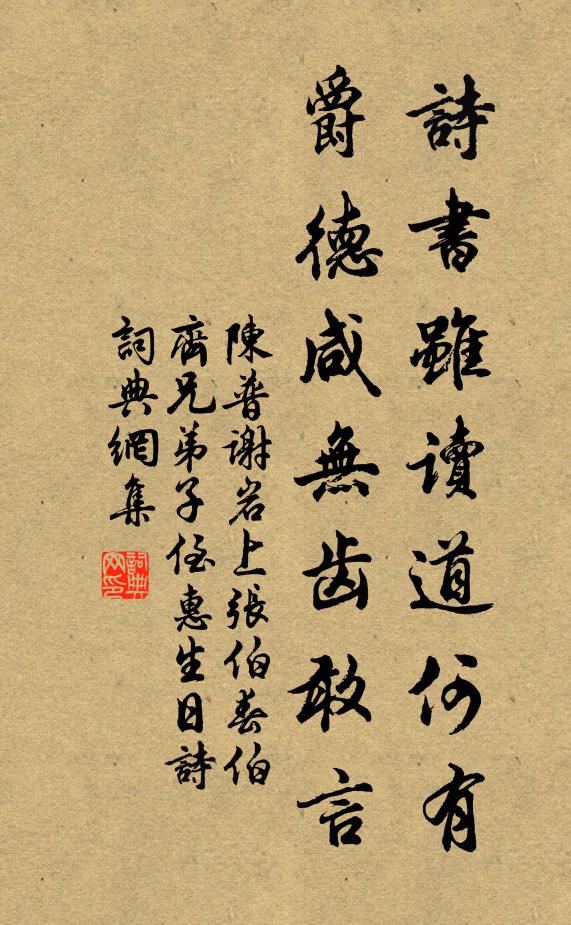 詩書雖讀道何有
爵德咸無齒敢言
陳普謝岩上張伯春伯
齊兄弟子侄惠生日詩
詞典網集
詞典網印